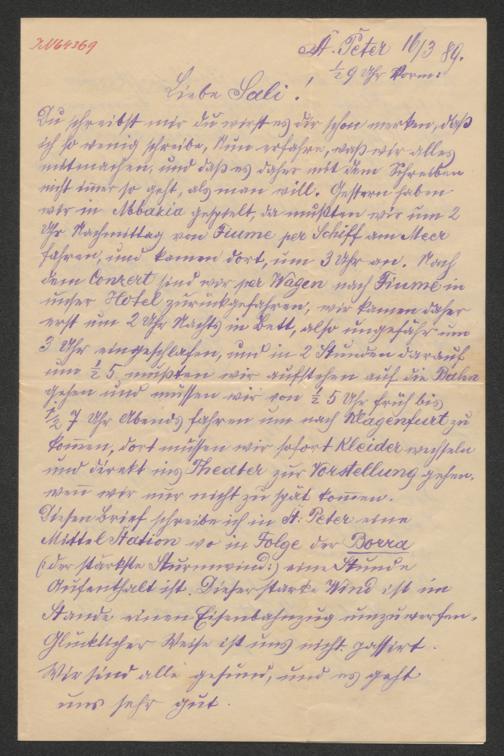 IN 64369
St. Peter 16/3 89.
½ 9 Uhr Vorm:
Liebe Sali!
Du schreibst mir du wirst es dir schon merken, daß
ich so wenig schreibe, Nun erfahre, was wir alles
mitmachen, und daß es daher mit dem Schreiben
nicht immer so geht, als man will. Gestern haben
wir in Abbazia gespielt, da mußten wir um 2
Uhr Nachmittag von Fiume per Schiff am Meer
fahren, und kamen dort, um 3 Uhr an. Nach
dem Conzert sind wir per Wagen nach Fiume in
unser Hotel zurückgefahren, wir kamen daher
erst um 2 Uhr Nachts in Bett, also ungefähr um
3 Uhr eingeschlafen, und in 2 Stunden darauf
um ½ 5 mußten wir aufstehen auf die Bahn
gehen und müssen wir von ½ 5 Uhr früh bis
½ 7 Uhr Abends fahren um nach Klagenfurt zu
kommen, dort müssen wir sofort Kleider wechseln
und direkt ins Theater zur Vorstellung gehen.
wenn wir nur nicht zu spät kommen.
Diesen Brief schreibe ich in St. Peter eine
Mittel Station wo in Folge der Borra
(:der stärkste Sturmwind:) eine Stunde
Aufenthalt ist. Dieser starke Wind ist im
Stande einen Eisenbahnzug umzuwerfen.
Glücklicher Weise ist uns nichts passirt.
Wir sind alle gesund, und es geht
uns sehr gut.